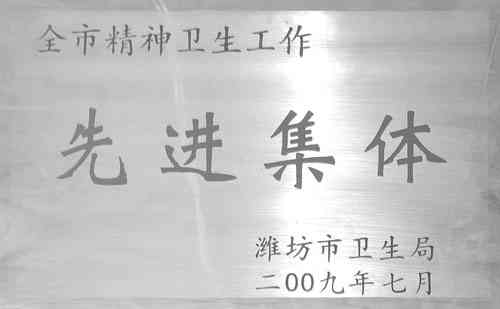 全市精神卫生工作
先进集体
潍坊市卫生局
二00九年七月